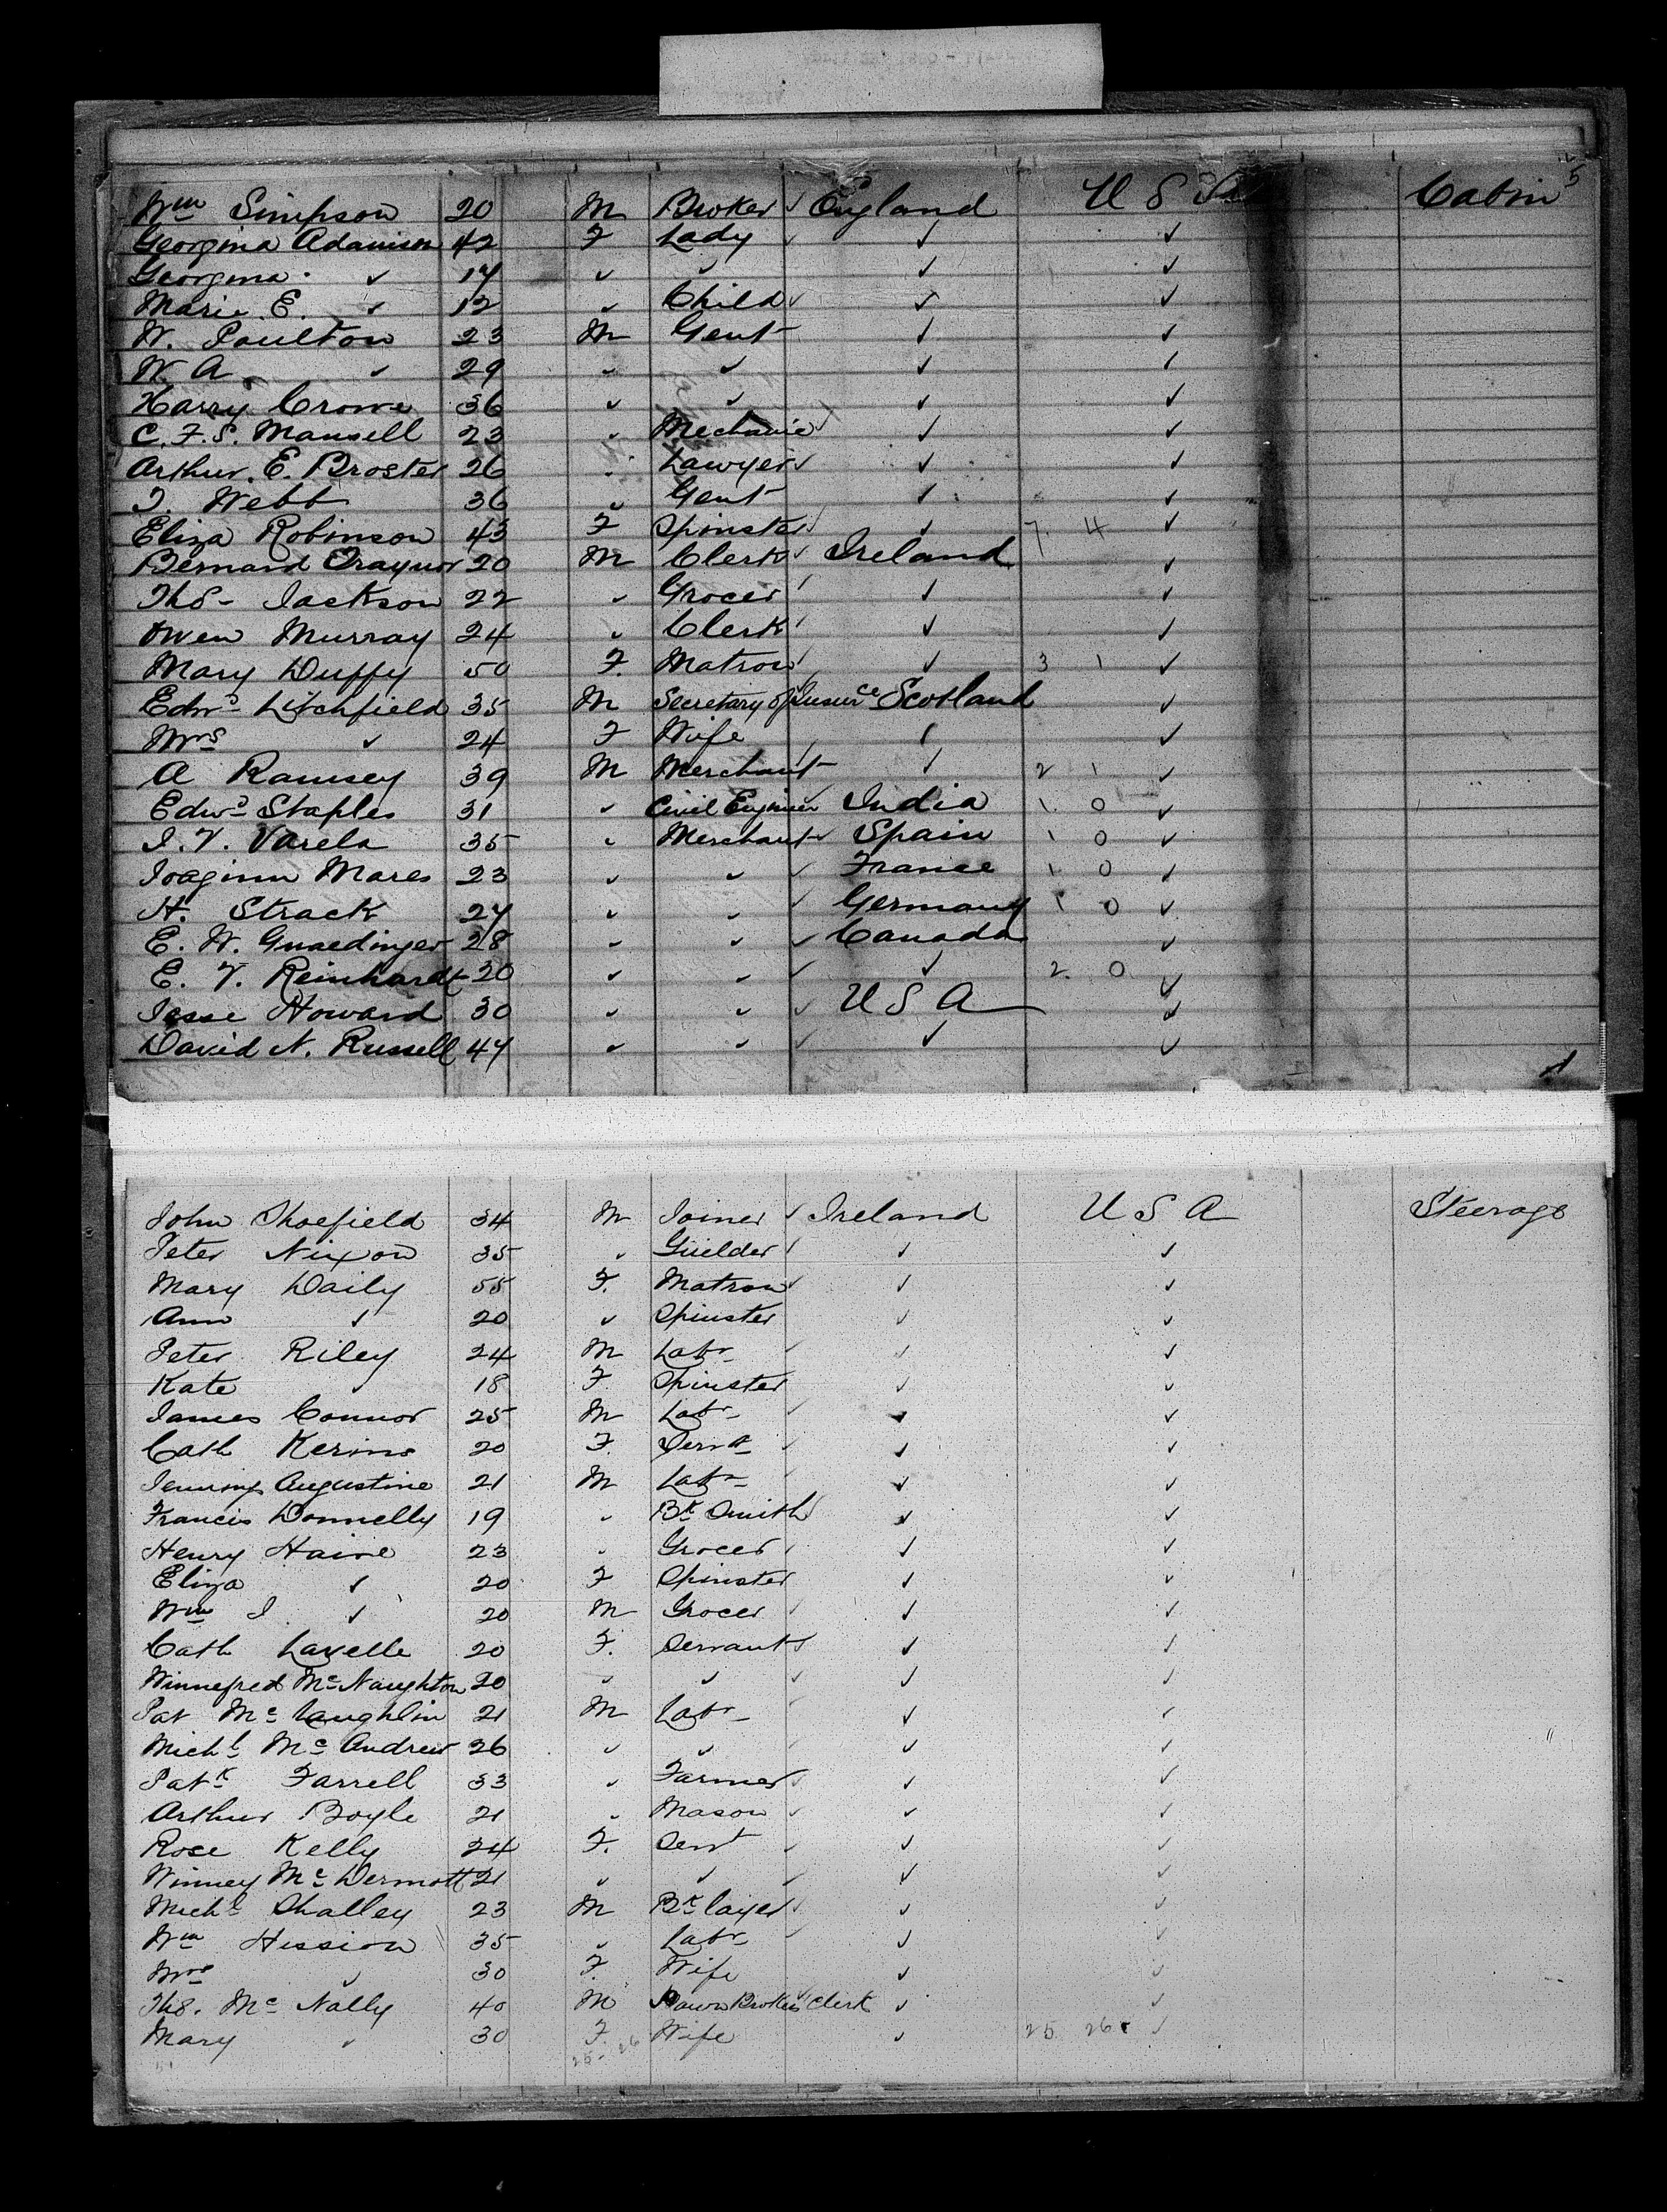 5
Wm Simpson 20 M Broker ✓ England U S Cabin
Georgina Adamson 42 F Lady ✓ ✓ ✓
Georgina ✓ 17 ✓ ✓ ✓ ✓
Marie E. ✓ 12 ✓ Child ✓ ✓ ✓
W. Poulton 23 M Gent ✓ ✓
W. A. ✓ 29 ✓ ✓ ✓ ✓
Harry Crowe 36 ✓ ✓ ✓ ✓
C. F. S. Mansell 23 ✓ Mechanic ✓ ✓ ✓
Arthur. E. Broster 26 ✓ Lawyer ✓ ✓ ✓
T. Webb 36 ✓ Gent ✓ ✓
Eliza Robinson 43 F Spinster ✓ ✓ 7. 4 ✓
Bernard Traynor 20 M Clerk ✓ Ireland ✓
Thos- Jackson 22 ✓ Grocer ✓ ✓ ✓
Owen Murray 24 ✓ Clerk ✓ ✓ ✓
Mary Duffy 50 F. Matron ✓ ✓ 3 1 ✓
Edwd Litchfield 35 M Secretary of Insurce Scotland ✓
Mrs ✓ 24 F Wife ✓ ✓
A Ramsey 39 M Merchant ✓ 2 1 ✓
Edwd Staples 31 ✓ Civil Engineer India 1. 0 ✓
J. V. Varela 35 ✓ Merchant ✓ Spain 1 0 ✓
Mares 23 ✓ ✓ ✓ France 1. 0 ✓
H. Strack 27 ✓ ✓ ✓ Germany 1 0 ✓
E. W. Gnaedinger 28 ✓ ✓ ✓ Canada ✓
E. V. Reinhardt 30 ✓ ✓ ✓ ✓ 2. 0 ✓
Jesse Howard 30 ✓ ✓ ✓ U S A ✓
David N. Russell 47 ✓ ✓ ✓ ✓ ✓
John Shoefield 34 M Joiner ✓ Ireland U S A Steerage
Peter Nixon 35 ✓ Guilder ✓ ✓ ✓
Mary Daily 55 F. Matron ✓ ✓ ✓
Ann ✓ 20 ✓ Spinster ✓ ✓
Peter Riley 24 M Labr ✓ ✓ ✓
Kate ✓ 18 F. Spinster ✓ ✓
James Connor 25 M Labr ✓ ✓ ✓
Cath Kerins 20 F. Servt ✓ ✓ ✓
Augustine 21 M Labr ✓ ✓ ✓
Francis Donnelly 19 ✓ Bk Smith ✓ ✓ ✓
Henry Haire 23 ✓ Grocer ✓ ✓ ✓
Eliza ✓ 20 F Spinster ✓ ✓
Wm J ✓ 20 M Grocer ✓ ✓ ✓
Cath Lavelle 20 F. Servant ✓ ✓ ✓
Winnefred Mc Naughton 20 ✓ ✓ ✓ ✓ ✓
Pat Mc Laughlin 21 M Labr ✓ ✓ ✓
Michl Mc Andrew 26 ✓ ✓ ✓ ✓ ✓
Patk Farrell 33 ✓ Farmer ✓ ✓ ✓
Arthur Boyle 21 ✓ Mason ✓ ✓ ✓
Rose Kelly 24 F. Servt ✓ ✓ ✓
Winney Mc Dermott 21 ✓ ✓ ✓ ✓ ✓
Michl Shalley 23 M Bk layer ✓ ✓ ✓
Wm Hession 35 ✓ Labr ✓ ✓ ✓
Mrs ✓ 30 F. Wife ✓ ✓
Thos. Mc Nally 40 M Pawn Brokers Clerk ✓ ✓
Mary ✓ 30 F. Wife ✓ 25 26 ✓
51 25- 26